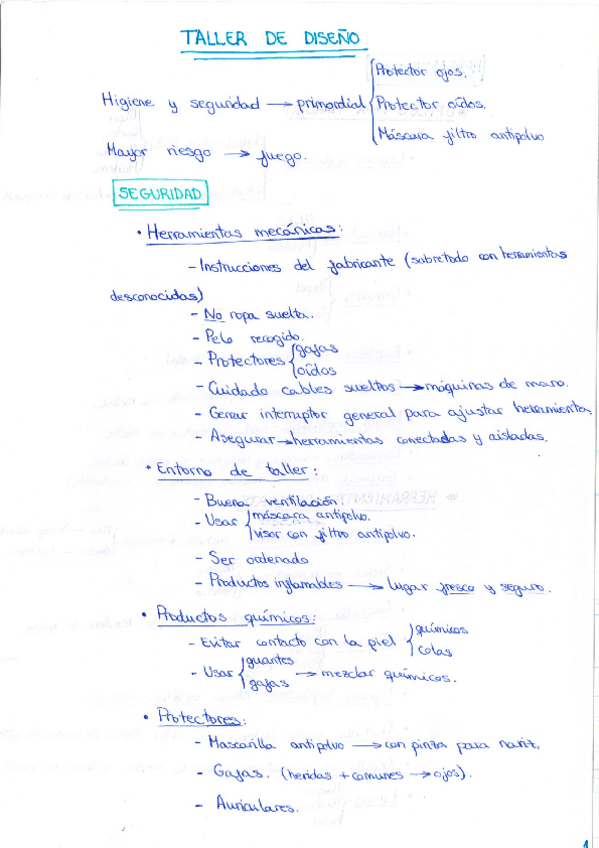 TALLER DE DISEÑO
Protector ojos.
Higiene y seguridad → primordial { Protector oídos.
Máscara filtro antipolvo
Mayor riesgo → fuego.
SEGURIDAD
• Herramientas mecánicas:
- Instrucciones del fabricante (sobretodo con herramientas
desconocidas)
- No ropa suelta.
- Pelo recogido.
- Protectores { gafas
oídos
- Cuidado cables sueltos → máquinas de mano.
- Cerrar interruptor general para ajustar herramientas.
- Asegurar → herramientas conectadas y aisladas.
• Entorno de taller:
- Buena ventilación.
- Usar { máscara antipolvo.
visor con filtro antipolvo.
- Ser ordenado
- Productos inflamables → lugar fresco y seguro.
• Productos químicos:
- Evitar contacto con la piel { químicos
colas
- Usar { guantes
gafas → mezclar químicos.
• Protectores:
- Mascarilla antipolvo → con pinza para nariz.
- Gafas. (heridas + comunes → ojos).
- Auriculares.
1